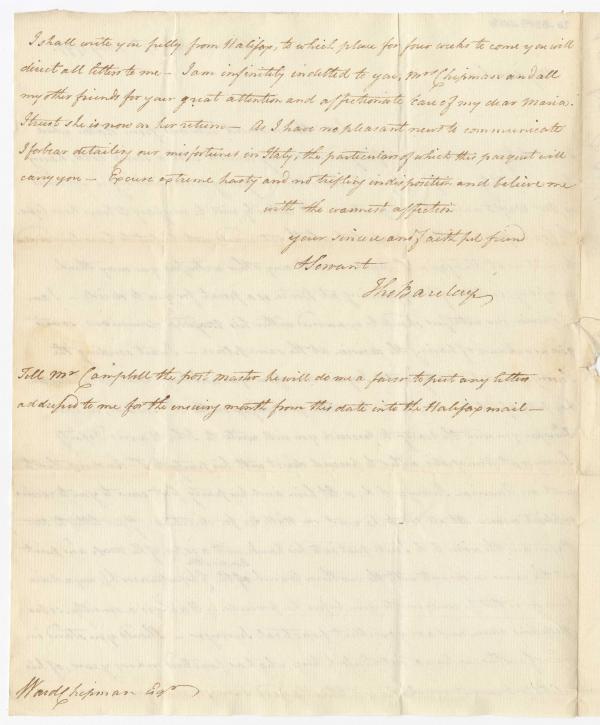 I shall write you fully from Halifax, to which place for four weeks to come you will
direct all letters to me — I am infinitely indebted to you, Mrs Chipman and all
my other friends for your great attention and affectionate Care of my dear Maria.
I trust she is now on her return — As I have no pleasant news to communicate
I forbear detailing our misfortunes in Italy, the particulars of which this pacquet will
carry you — Excuse extreme hasty and no trifling indisposition and believe me
with the warmest affection
your sincere and faithful friend
& Servant
Tho Barclay
Tell Mr Campbell the post master he will do me a favor to put any letters
addressed to me for the ensuing month from this date into the Halifax mail —
Ward Chipman Esqr